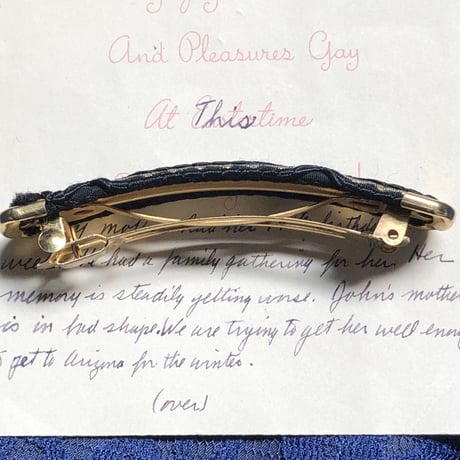 And Pleasures Gay
At This time
my mother had her birthday
had a family gathering for her. Her
memory is steadily getting worse. John's mother
is in bad shape. We are trying to get her well
get to Arizona for the winter.
(over)